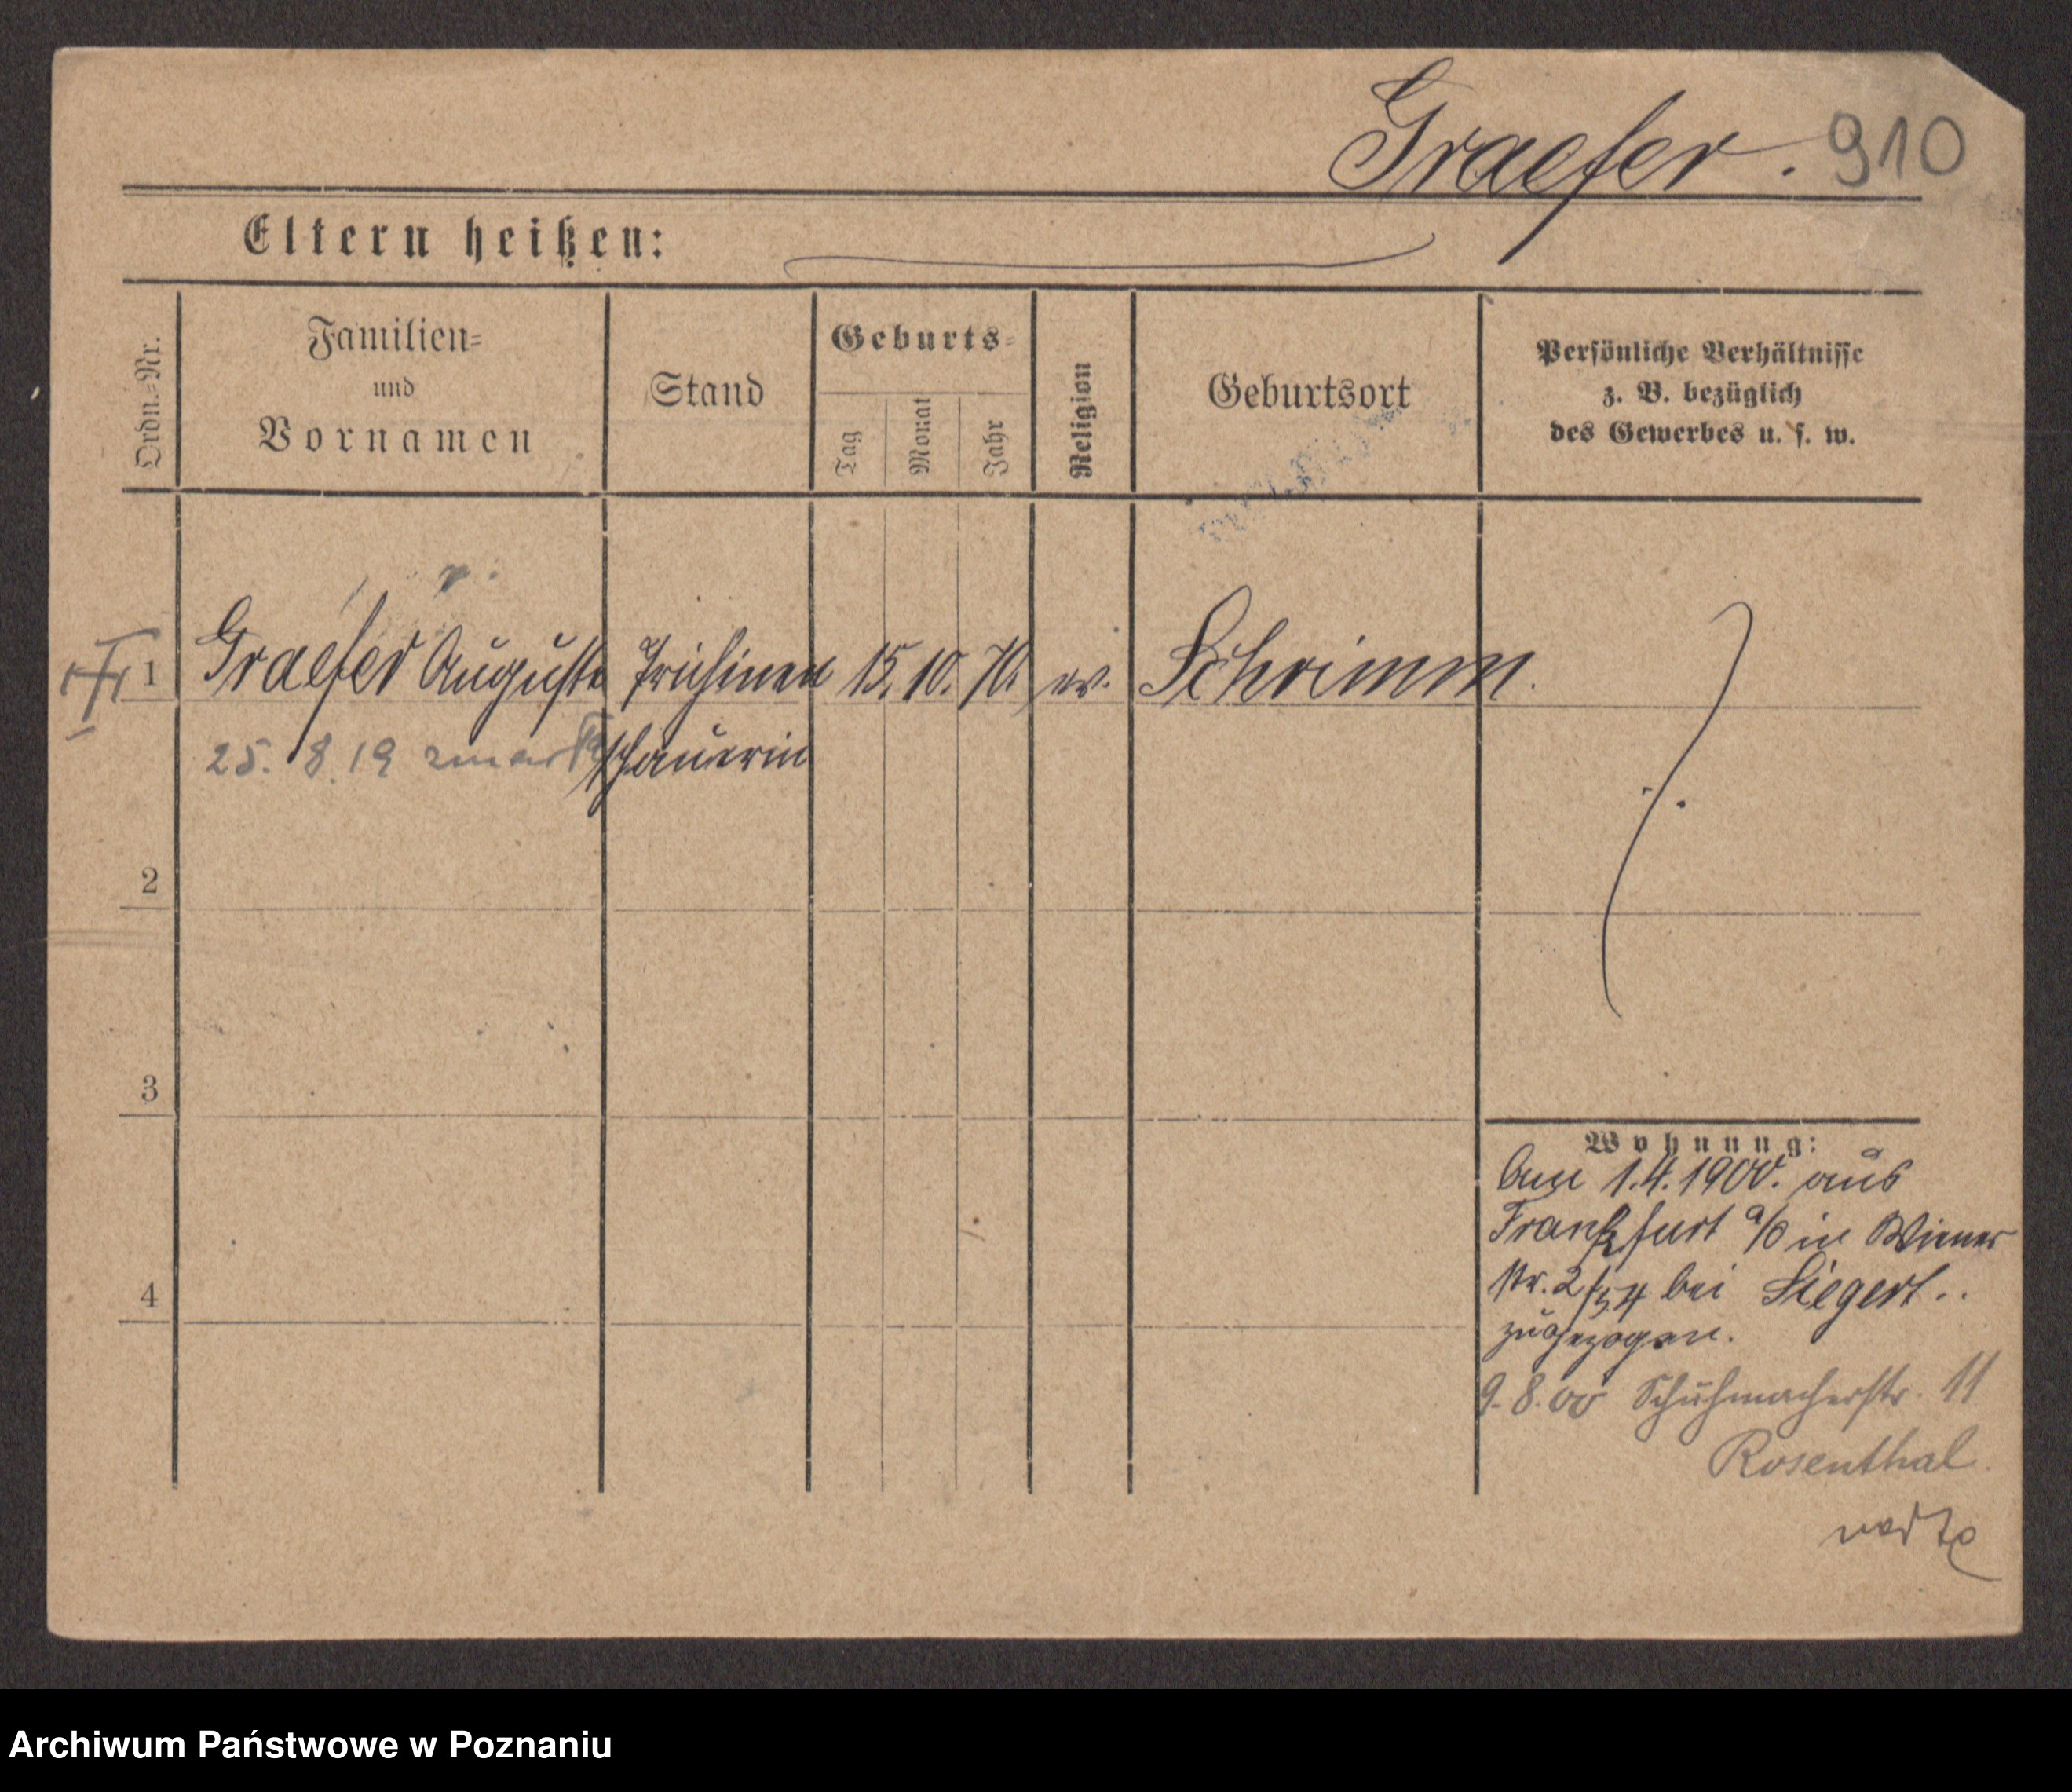 Graefer. 910
Eltern heißen:
Ordn.-Nr.
Familien-
und
Vornamen
Stand
Geburts-
Tag
Monat
Jahr
Religion
Geburtsort
Persönliche Verhältnisse
z. B. bezüglich
des Gewerbes u. s. w.
1 Graefer Auguste Trichinen 15. 10. 70. ev. Schrimm.
25. 8. 19 zmarła schauerin
2
3
4
Wohnung:
Am 1.4.1900. aus
Frankfurt a/O in Wiener
str. 2 bei Siegert..
zugezogen.
9. 8. 00 Schuhmacherstr. 11
Rosenthal.
Archiwum Państwowe w Poznaniu